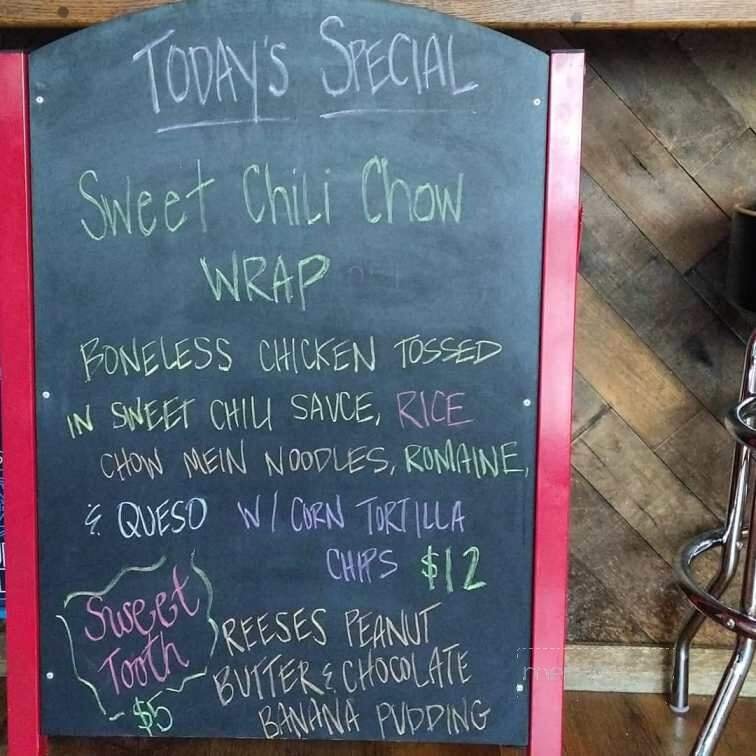 TODAY'S SPECIAL
Sweet Chili Chow
WRAP
BONELESS CHICKEN TOSSED
IN SWEET CHILI SAUCE, RICE
CHOW MEIN NOODLES, ROMAINE,
& QUESO W/ CORN TORTILLA
CHIPS $12
Sweet
Tooth
$5
REESES PEANUT
BUTTER & CHOCOLATE
BANANA PUDDING